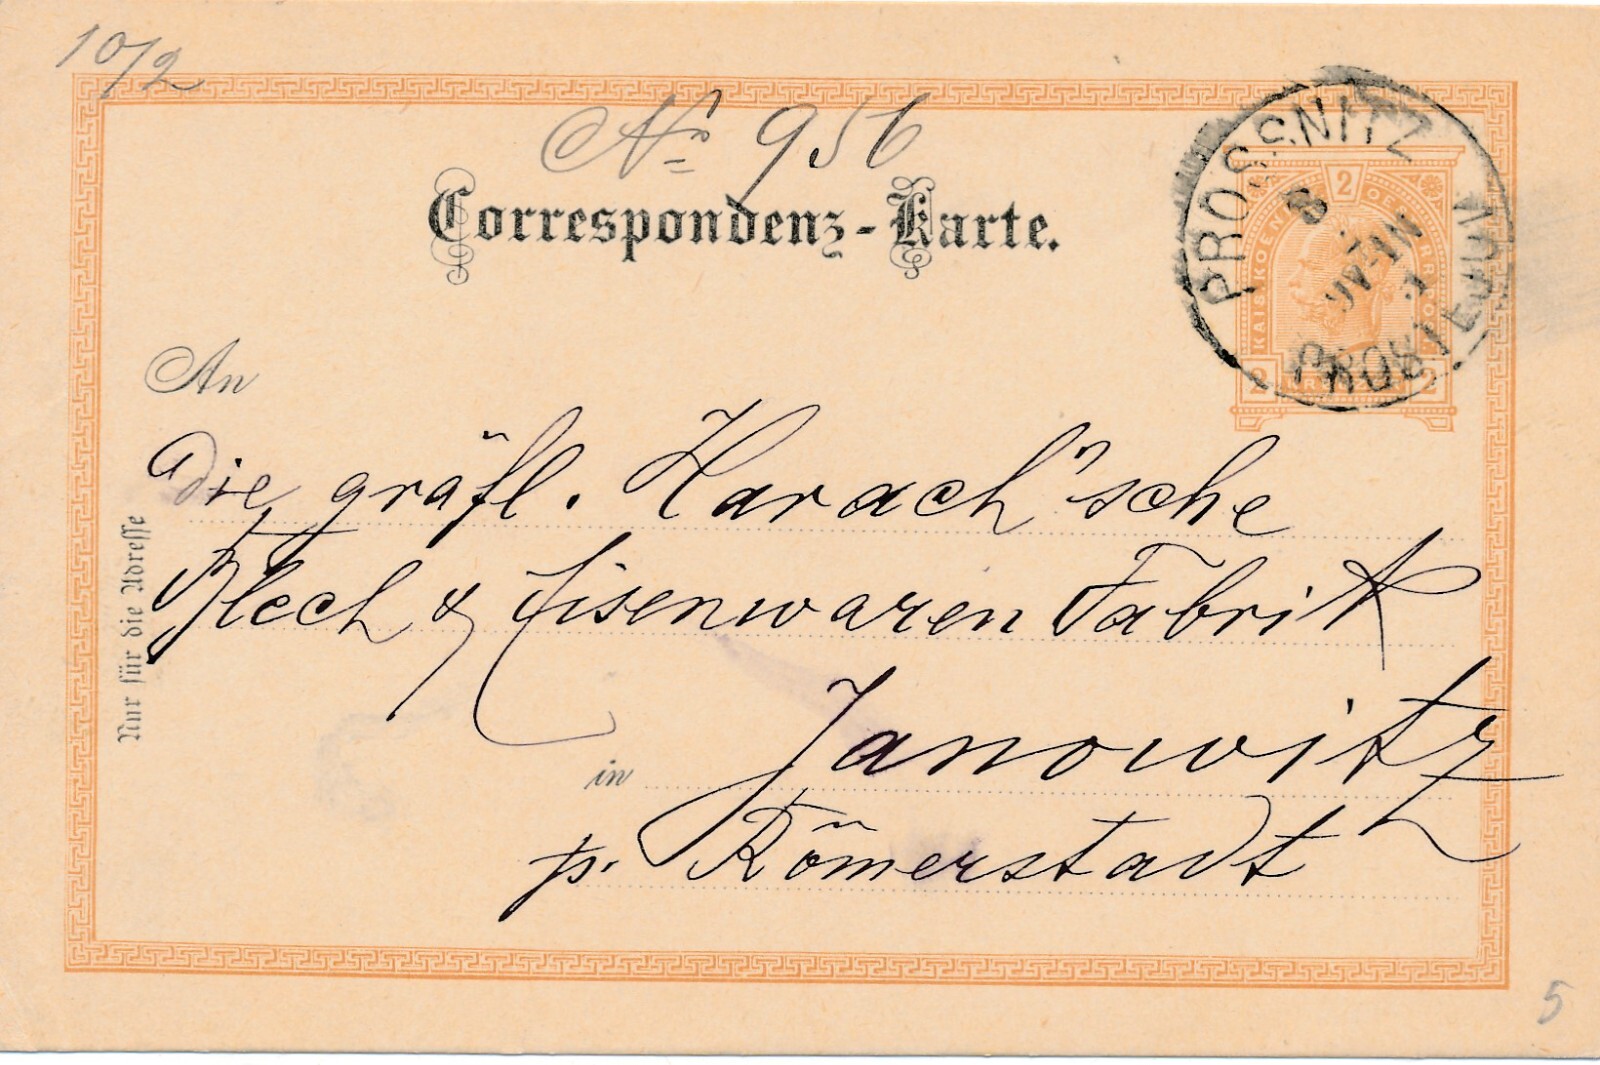 10/2
No 956
Correspondenz-Karte.
PROSSNITZ
PROSTĚJOV
2
KAIS KOEN
2 KREUZER 2
An
die gräfl. Harach'sche
Blech & Eisenwaren Fabrik
in Janowitz
p. Römerstadt
Nur für die Adresse
5